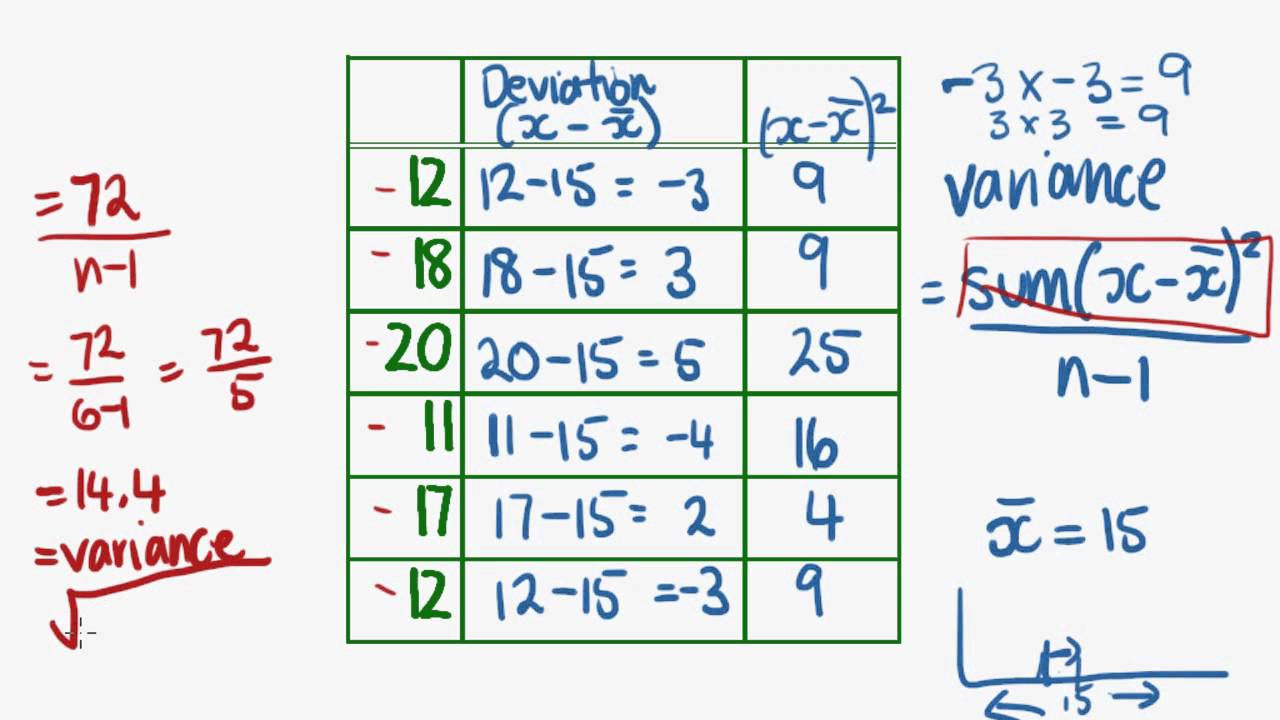 = 72
n-1
= 72 = 72
6-1 5
= 14.4
= variance
√
Deviation
(x - x̄) (x-x̄)²
- 12 12-15 = -3 9
- 18 18-15 = 3 9
- 20 20-15 = 5 25
- 11 11-15 = -4 16
- 17 17-15 = 2 4
- 12 12-15 = -3 9
-3 x -3 = 9
3 x 3 = 9
variance
= sum(x-x̄)²
n-1
x̄ = 15
15